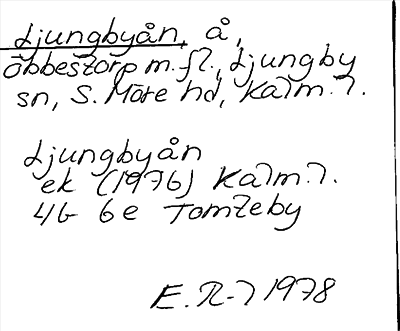 Ljungbyån, å,
Öbbestorp m.fl., Ljungby
sn, S. Möre hd, Kalm. l.
Ljungbyån
ek (1976) Kalm. l.
4G 6e Tomteby
E. R-l 1978